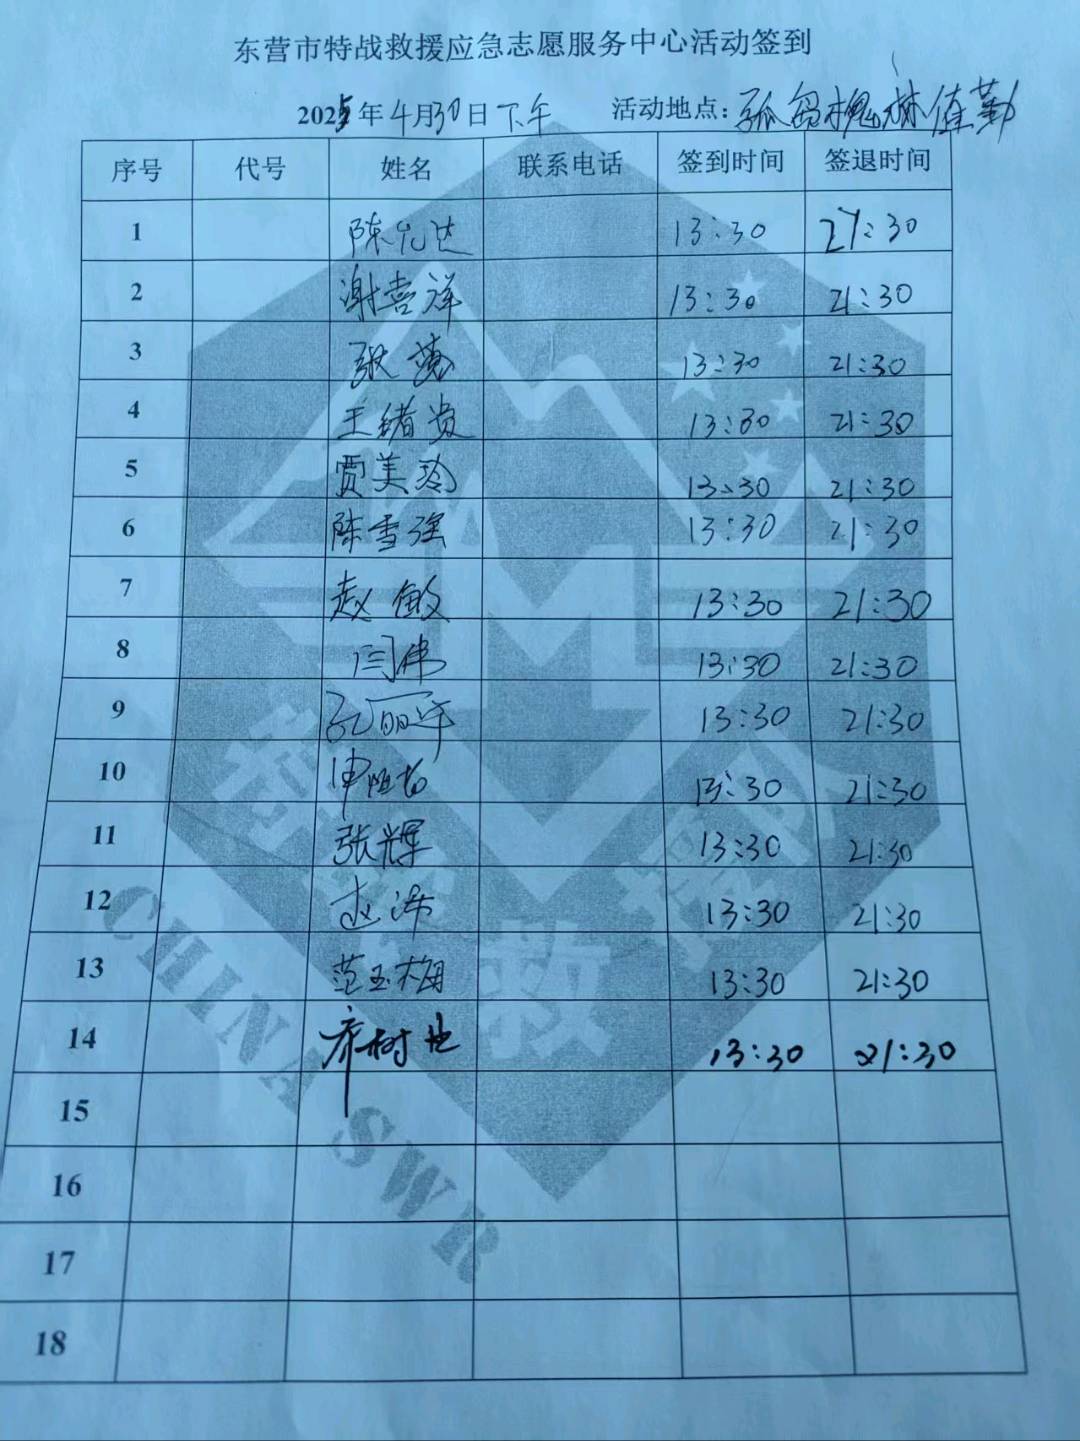 东营市特战救援应急志愿服务中心活动签到
2025年4月30日下午 活动地点:孤岛槐林值勤
序号 代号 姓名 联系电话 签到时间 签退时间
1 陈允达 13:30 21:30
2 谢喜祥 13:30 21:30
3 张 13:30 21:30
4 王绪贵 13:30 21:30
5 贾美玲 13:30 21:30
6 陈雪强 13:30 21:30
7 赵敏 13:30 21:30
8 闫伟 13:30 21:30
9 孔丽 13:30 21:30
10 13:30 21:30
11 张辉 13:30 21:30
12 赵 13:30 21:30
13 范玉 13:30 21:30
14 乔树 13:30 21:30
15
16
17
18
特战救援队
CHINA SWR